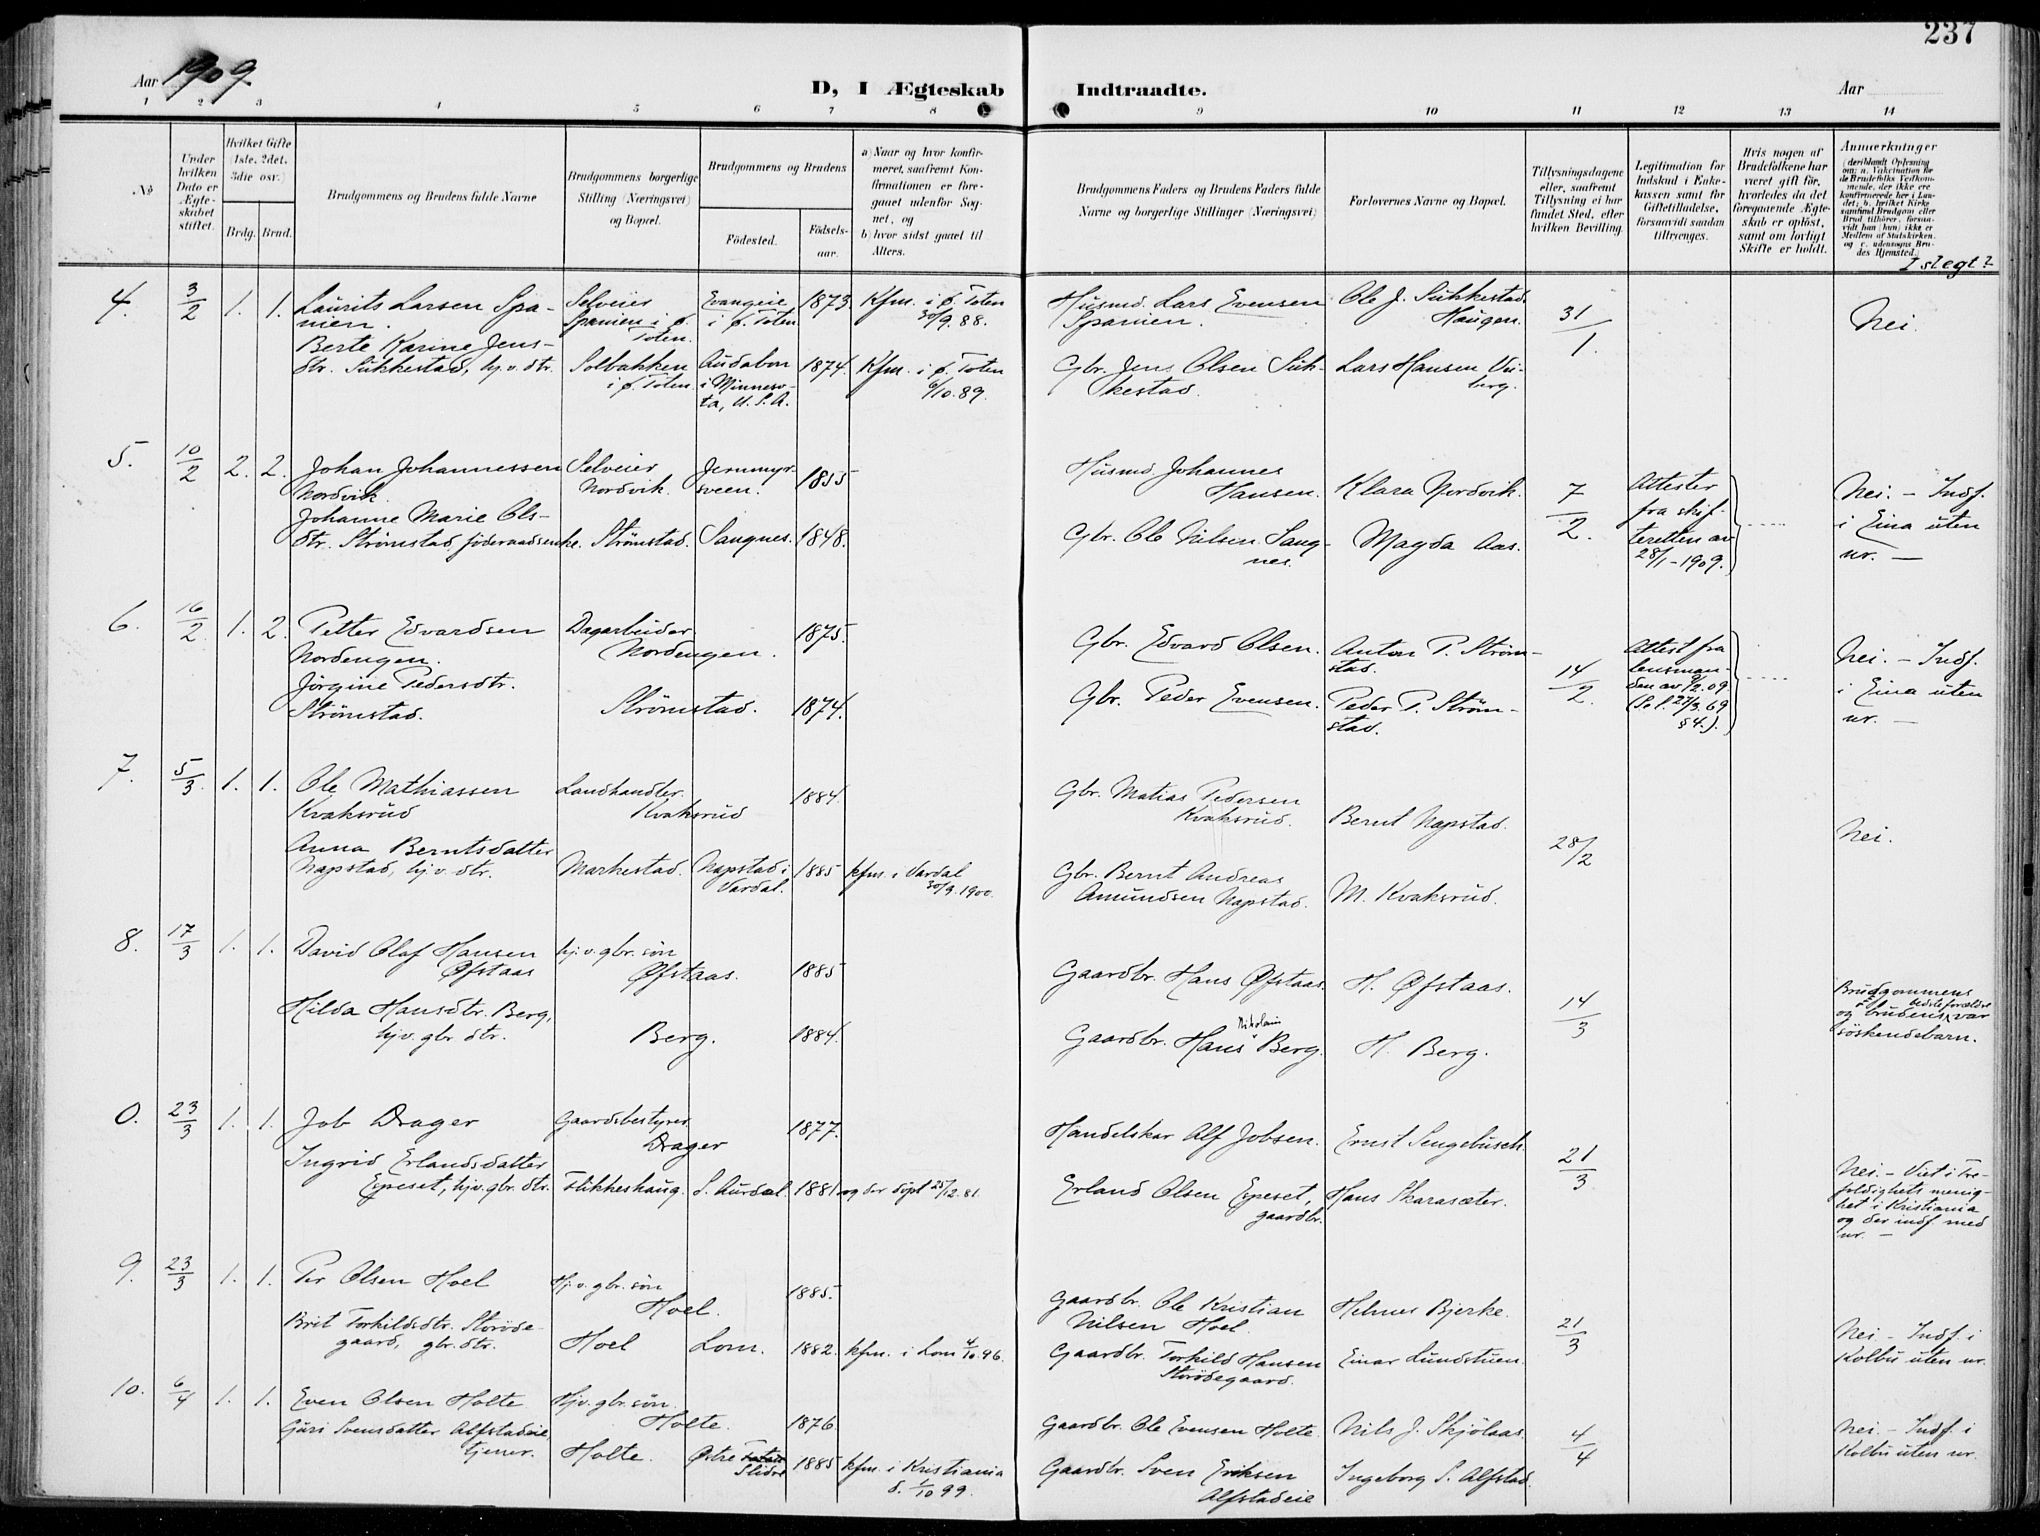 237
Aar 1909.
D, I Ægteskab Indtraadte.
Aar
1 2 3 4 5 6 7 8 9 10 11 12 13 14
№
Under hvilken Dato er Ægteskabet stiftet.
Hvilket Gifte (1ste, 2det, 3die osv.)
Brdg. Brud.
Brudgommens og Brudens fulde Navne
Brudgommens borgerlige Stilling (Næringsvei) og Bopæl.
Brudgommens og Brudens
Fødested.
Fødsels-aar.
a) Naar og hvor konfirmeret, saafremt Konfirmationen er foregaaet udenfor Sognet, og
b) hvor sidst gaaet til Alters.
Brudgommens Faders og Brudens Faders fulde Navne og borgerlige Stillinger (Næringsvei)
Forlovernes Navne og Bopæl.
Tillysningsdagene eller, saafremt Tillysning ei har fundet Sted, efter hvilken Bevilling.
Legitimation for Indskud i Enkekassen samt for Giftetilladelse, forsaavidt saadan tiltrænges.
Hvis nogen af Brudefolkene har været gift før, hvorledes da det foregaaende Ægteskab er opløst, samt om lovligt Skifte er holdt.
Anmærkninger
(deriblandt Oplysning om: a. Vakcination for de Brudefolks Vedkommende, der ikke ere konfirmerede her i Landet; b. hvilket Kirkesamfund Brudgom eller Brud tilhører, forsaavidt han (hun) ikke er Medlem af Statskirken, og c. udensogns Brudes Hjemsted.
I slegt?
4. 3/2 1. 1. Laurits Larsen Spanien. Selveier Spanien i ø. Toten. Evangeie i ø. Toten 1873. Kfm. i ø. Toten 30/9.88. Husmd. Lars Evensen Spanien. Ole J. Sukkestad. Haugen. 31/1. Nei.
Berte Karine Jens-
dtr. Sukkestad, hj.v. dtr. Solbakken i ø. Toten. Audabon i Minnesota, U.S.A. 1874. Kfm. i ø. Toten 6/10.89. Gbr. Jens Olsen Sukkestad. Lars Hansen Viberg.
5. 10/2 2. 2. Johan Johannessen Nordvik. Selveier Nordvik. Jernmyrsveen. 1855 Husmd. Johannes Hansen. Klara Nordvik. 7/2. Attester fra skifteretten av 28/1-1909. Nei. - Indf. i Eina uten nr. -
Johanne Marie Ols-
dtr. Strømstad føderaadsenke. Strømstad. Sangnes. 1848. Gbr. Ole Nilsen Sangnes. Magda Aas.
6. 16/2 1. 2. Petter Edvardsen Nordengen. Dagarbeider Nordengen. 1875. Gbr. Edvard Olsen. Anton P. Strømstad. 14/2. Attest fra lensmanden av 9/2.09. (Se l. 20/3.69 §4.). Nei. - Indf. i Eina uten nr. -
Jørgine Pedersdtr. Strømstad. Strømstad. 1874. Gbr. Peder Evensen. Peder P. Strømstad.
7. 5/3. 1. 1. Ole Mathiassen Kvaksrud Landhandler. Kvaksrud 1884. Gbr. Matias Pedersen Kvaksrud. Bernt Napstad. 28/2 Nei.
Anna Berntsdatter
Napstad, hj.v. dtr. Markestad. Napstad i Vardal. 1885 kfm. i Vardal 30/9.1900. Gbr. Bernt Andreas Amundsen Napstad. M. Kvaksrud.
8. 17/3 1. 1. David Olaf Hansen Øfstaas hj.v. gbr. søn Øfstaas. 1885 Gaardbr. Hans Øfstaas. H. Øfstaas. 14/3 Brudgommens og brudens bedsteforældre var søskendebarn.
Hilda Hansdtr. Berg, hj.v. gbr. dtr. Berg. 1884. Gaardbr. Hans Nikolai Berg. H. Berg.
0. 23/3 1. 1. Job Drager Gaardsbestyrer Drager 1877. Handelskar Alf Jobsen. Ernst Sengebusch. 21/3 Nei. - Viet i Trefoldighets menighet i Kristiania og der indf. med nr. -
Ingrid Erlandsdatter
Espeset, hj.v. gbr. dtr. Flikkeshaug. S. Aurdal. 1881 og der døpt 25/12.81. Erland Olsen Espeset, gaardbr. Hans Skarasæter.
9. 23/3 1. 1. Per Olsen Hoel Hj.v. gbr. søn Hoel. 1885. Gaardbr. Ole Kristian Nilsen Hoel. Helmer Bjerke. 21/3 Nei - Indf. i Kolbu uten nr.
Brit Torkildsdtr. Storødegaard, gbr. dtr. Hoel Lom. 1882. kfm. i Lom 4/10.96. Gaardbr. Torkild Hansen Storødegaard. Einar Lundstuen.
10. 6/4 1. 1. Even Olsen Holte Hj.v. gbr. søn. Holte. 1876 Gaardbr. Ole Evensen Holte. Nils J. Skjølaas. 4/4 Nei. - Indf. i Kolbu uten nr.
Guri Svensdatter Alfstadeie tjener. Holte. Østre Slidre 1885 kfm. i Kristiania d. 1/10 99. Gaardbr. Sven Eriksen Alfstadeie Ingeborg S. Alfstad.